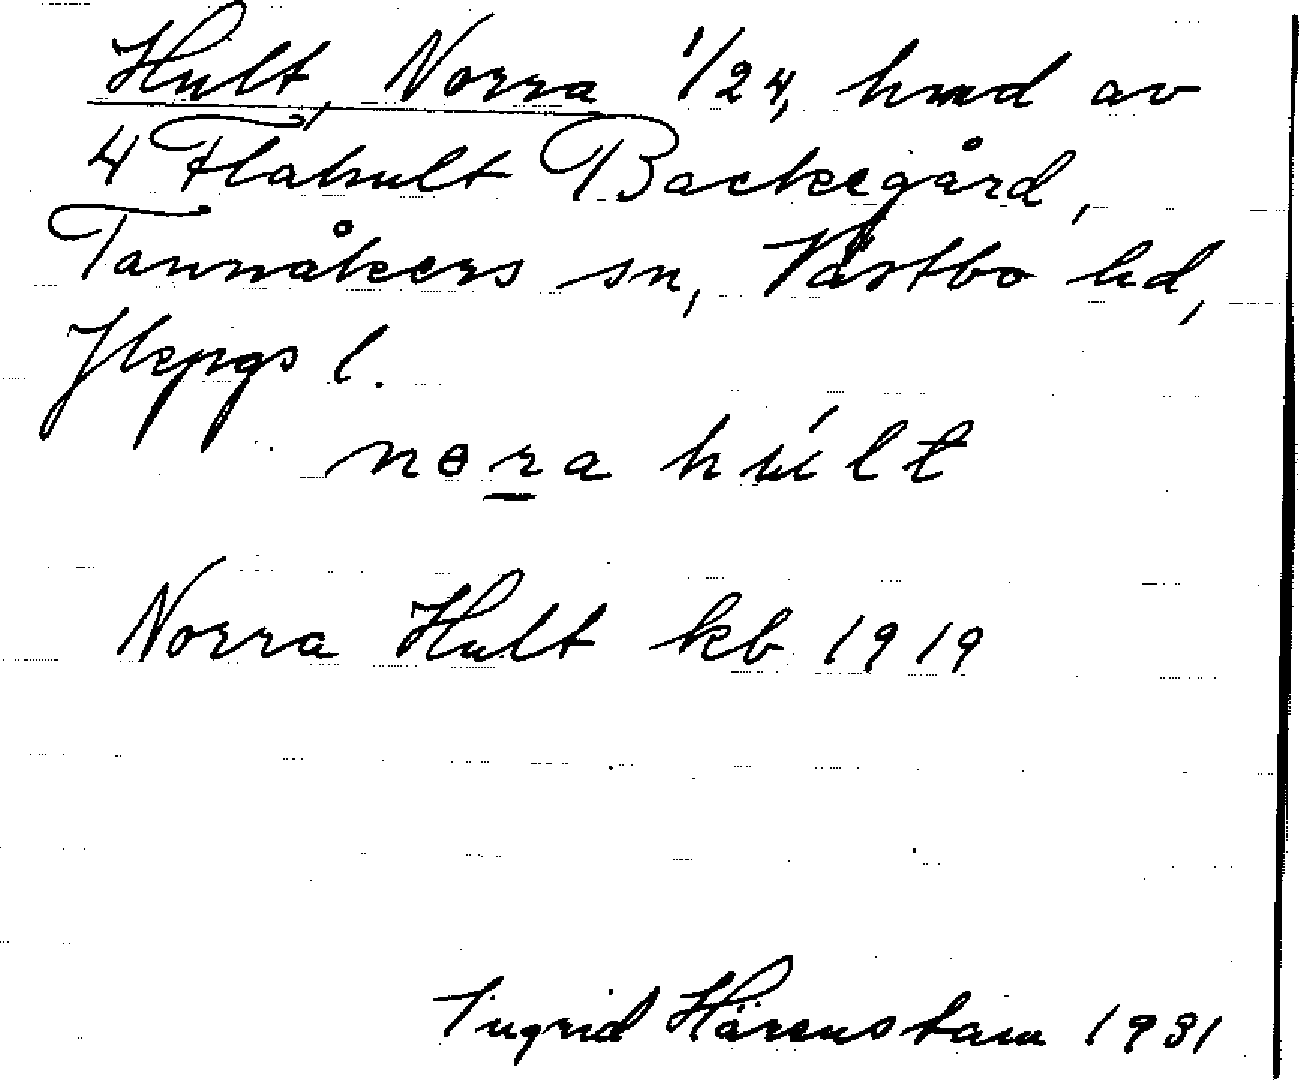 Hult, Norra 1/24, hmd av
4 Flahult Backegård,
Tannåkers sn, Västbo hd,
Jkpgs l.
nɵra húlt
Norra Hult kb 1919
Ingrid Härenstam 1931